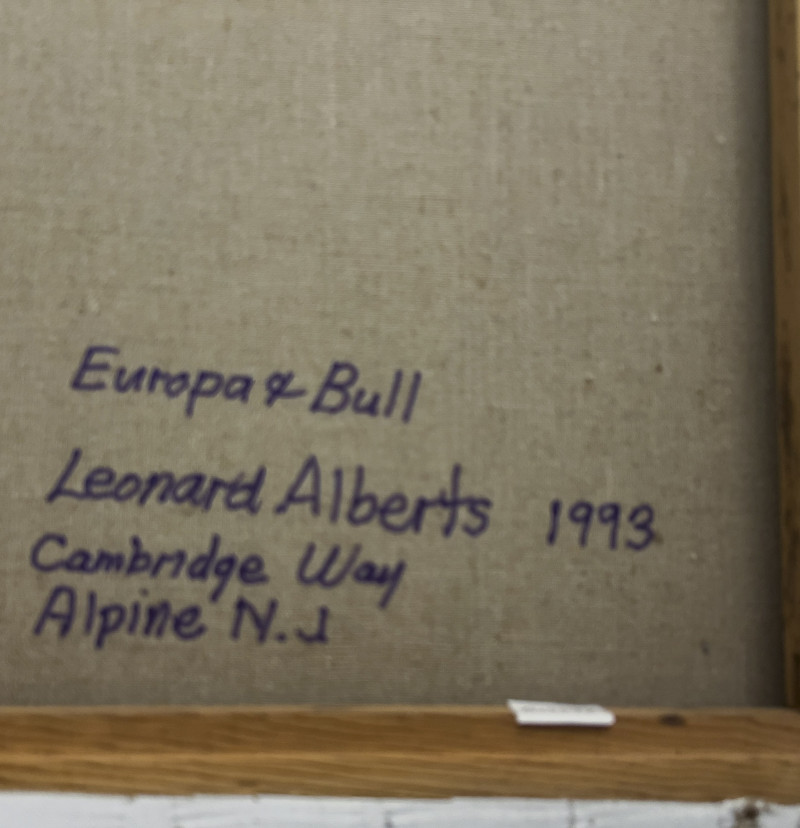 Europa & Bull
Leonard Alberts 1993
Cambridge Way
Alpine N.J